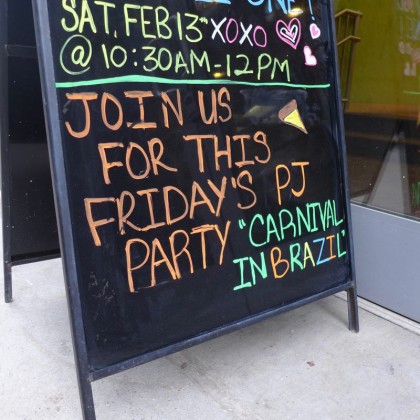 ONE!
SAT, FEB 13TH XOXO
@ 10:30AM-12PM
JOIN US
FOR THIS
FRIDAY'S PJ
PARTY "CARNIVAL
IN BRAZIL"